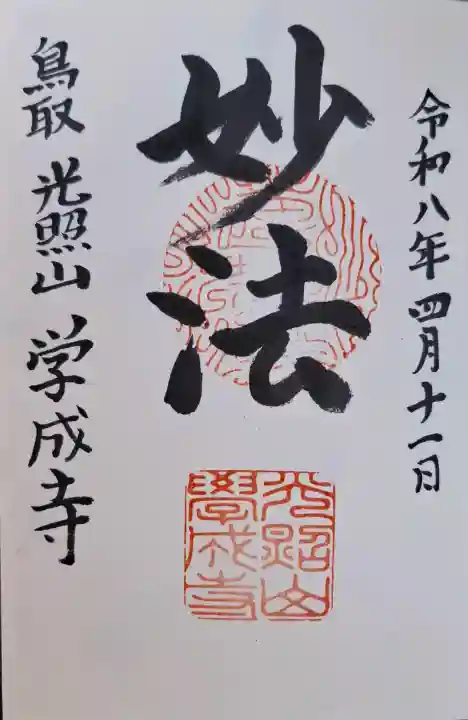 令和八年四月十一日
妙法
鳥取 光照山 学成寺
光照山
學成寺